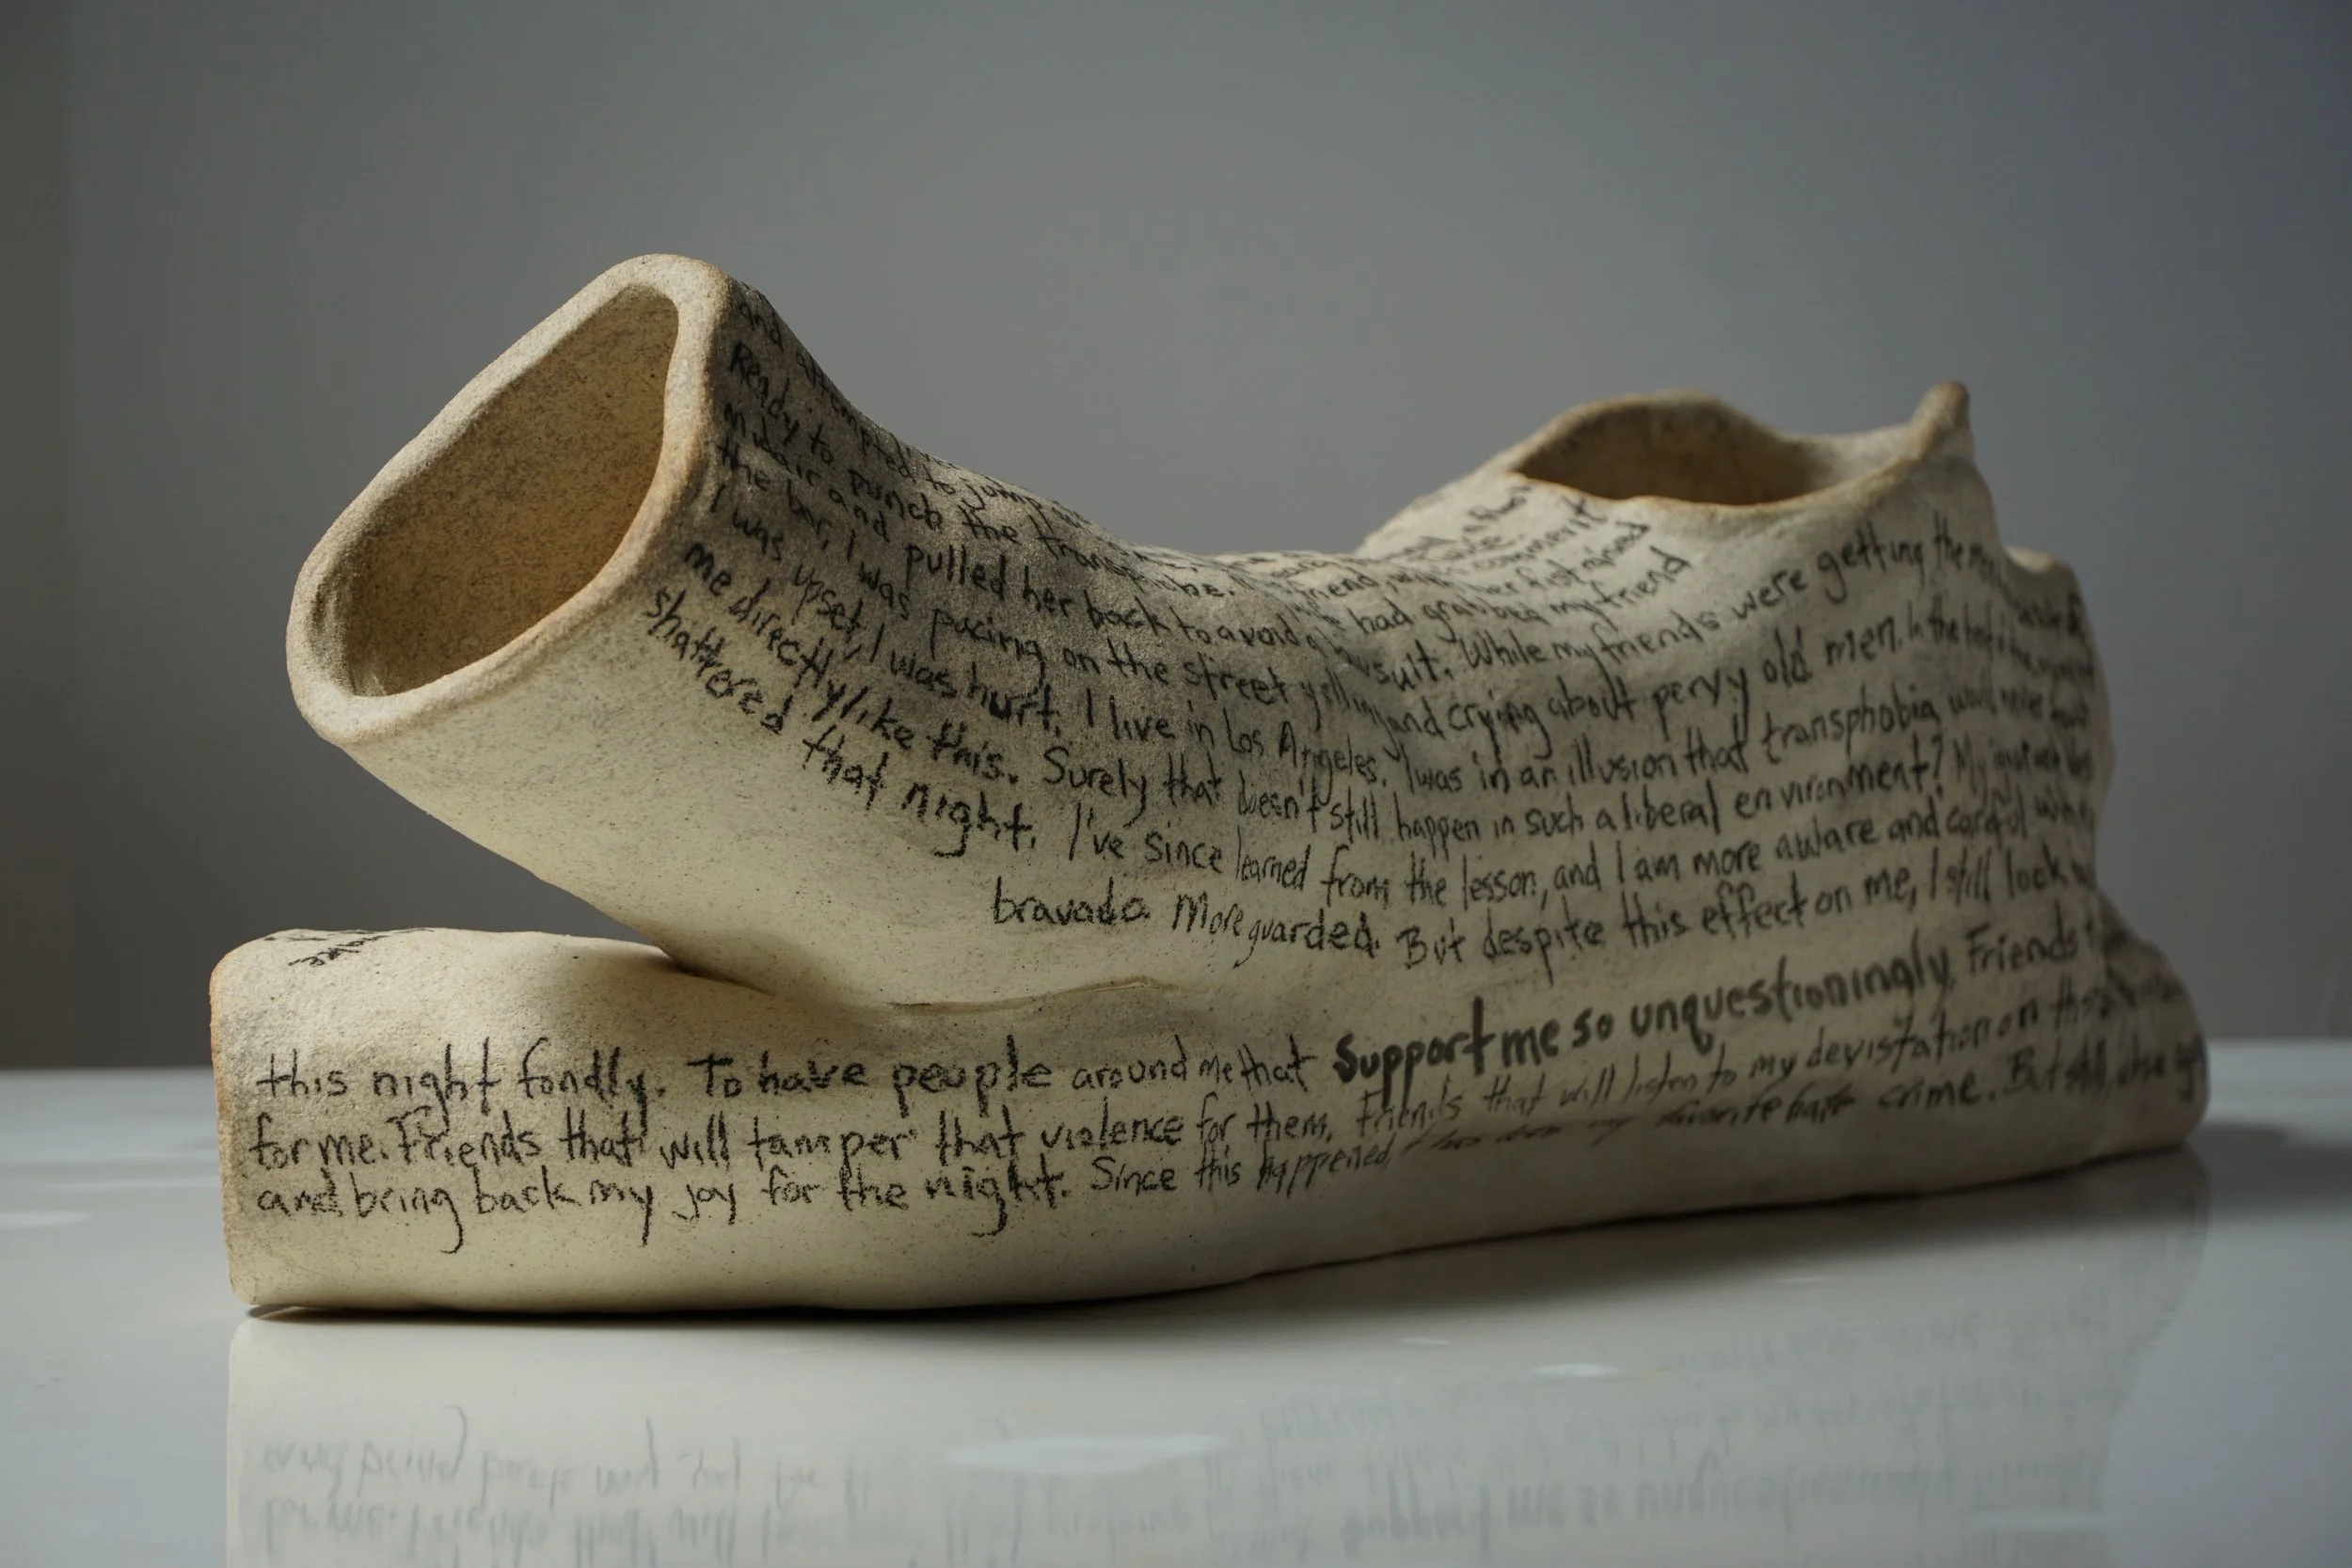 and attempted to jump
Ready to punch the transphobe. friend, with her fist raised
midair and pulled her back to avoid a lawsuit. While my friends were getting the
the bar, I was pacing on the street yelling and crying about pervy old men. In the
I was upset, I was hurt. I live in Los Angeles. I was in an illusion that transphobia would never
me directly like this. Surely that doesn't still happen in such a liberal environment? My
shattered that night. I've since learned from the lesson, and I am more aware and careful with
bravado. More guarded. But despite this effect on me, I still look
this night fondly. To have people around me that Support me so unquestioningly. Friends
for me. Friends that will tamper that violence for them. Friends that will listen to my devistation on
and bring back my joy for the night. Since this happened, my favorite hate crime. But still,
had grabbed my friend
comment